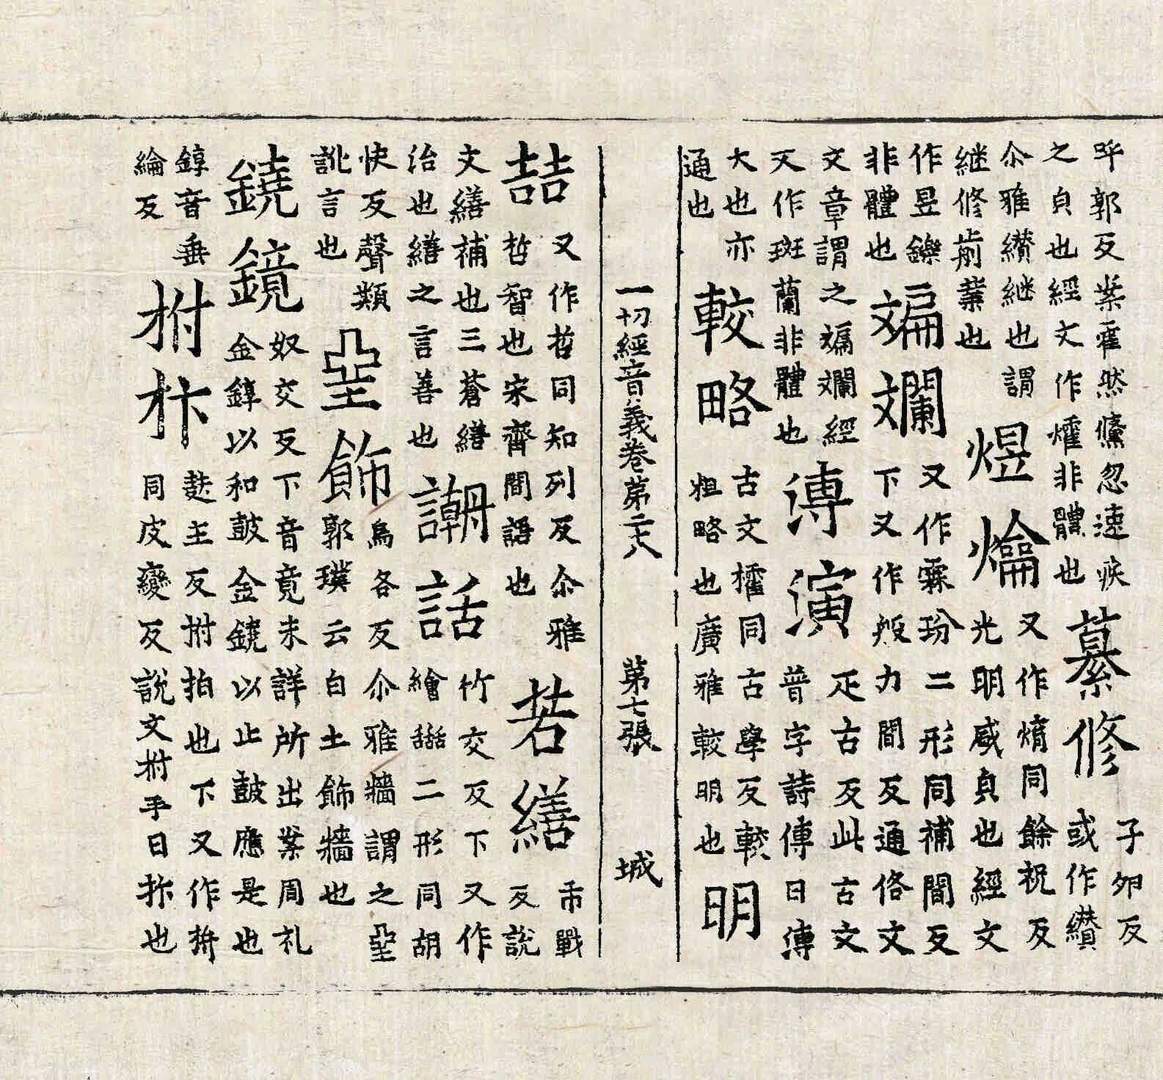 呼郭反案霍然儵忽速疾之皃也經文作㸌非體也纂修子卵反或作纘
尒雅纘継也謂継修前業也煜爚又作焴同餘祝反光明盛皃也經文
作昱鑠非體也斒斕又作霦玢二形同補間反下又作力間反通俗文
文章謂之斒斕經文作斑蘭非體也溥演疋古反此古文普字詩傳曰溥
大也亦通也較略古文㩁同古學反較粗略也廣雅較明也明
一切經音義卷第二十八 第七張 城
喆又作哲同知列反尒雅哲智也宋齊間語也若繕市戰反說
文繕補也三蒼繕治也繕之言善也謿話竹交反下又作繪䛡二形同胡
快反聲類訛言也堊飾烏各反尒雅牆謂之堊郭璞云白土飾牆也
鐃鏡奴交反下音竟未詳所出案周礼金錞以和鼓金鐃以止鼓應是也
錞音垂綸反拊抃麩主反拊拍也下又作拚同皮變反說文拊手曰抃也